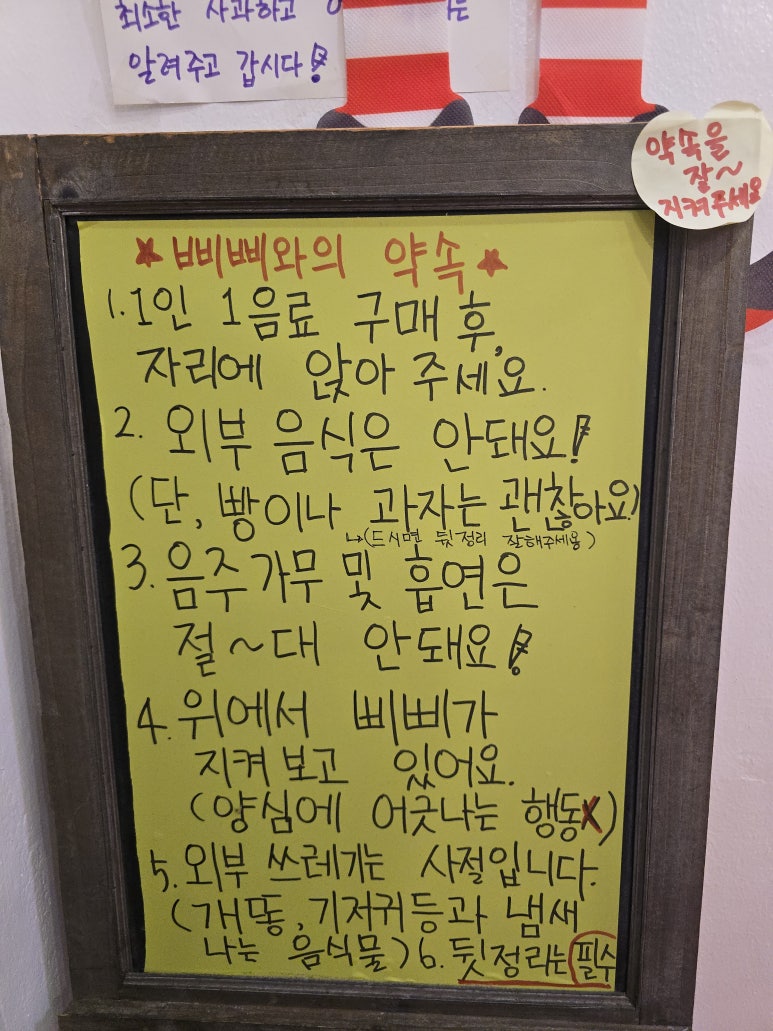 최소한 사과하고
알려주고 갑시다!
약속을
잘~
지켜주세요
★삐삐와의 약속★
1. 1인 1음료 구매 후,
자리에 앉아 주세요.
2. 외부 음식은 안돼요!
(단, 빵이나 과자는 괜찮아요)
↳(드시면 뒷정리 잘해주세용)
3. 음주가무 및 흡연은
절~대 안돼요!
4. 위에서 삐삐가
지켜보고 있어요.
(양심에 어긋나는 행동X)
5. 외부 쓰레기는 사절입니다.
(개똥, 기저귀등과 냄새
나는 음식물) 6. 뒷정리는 필수